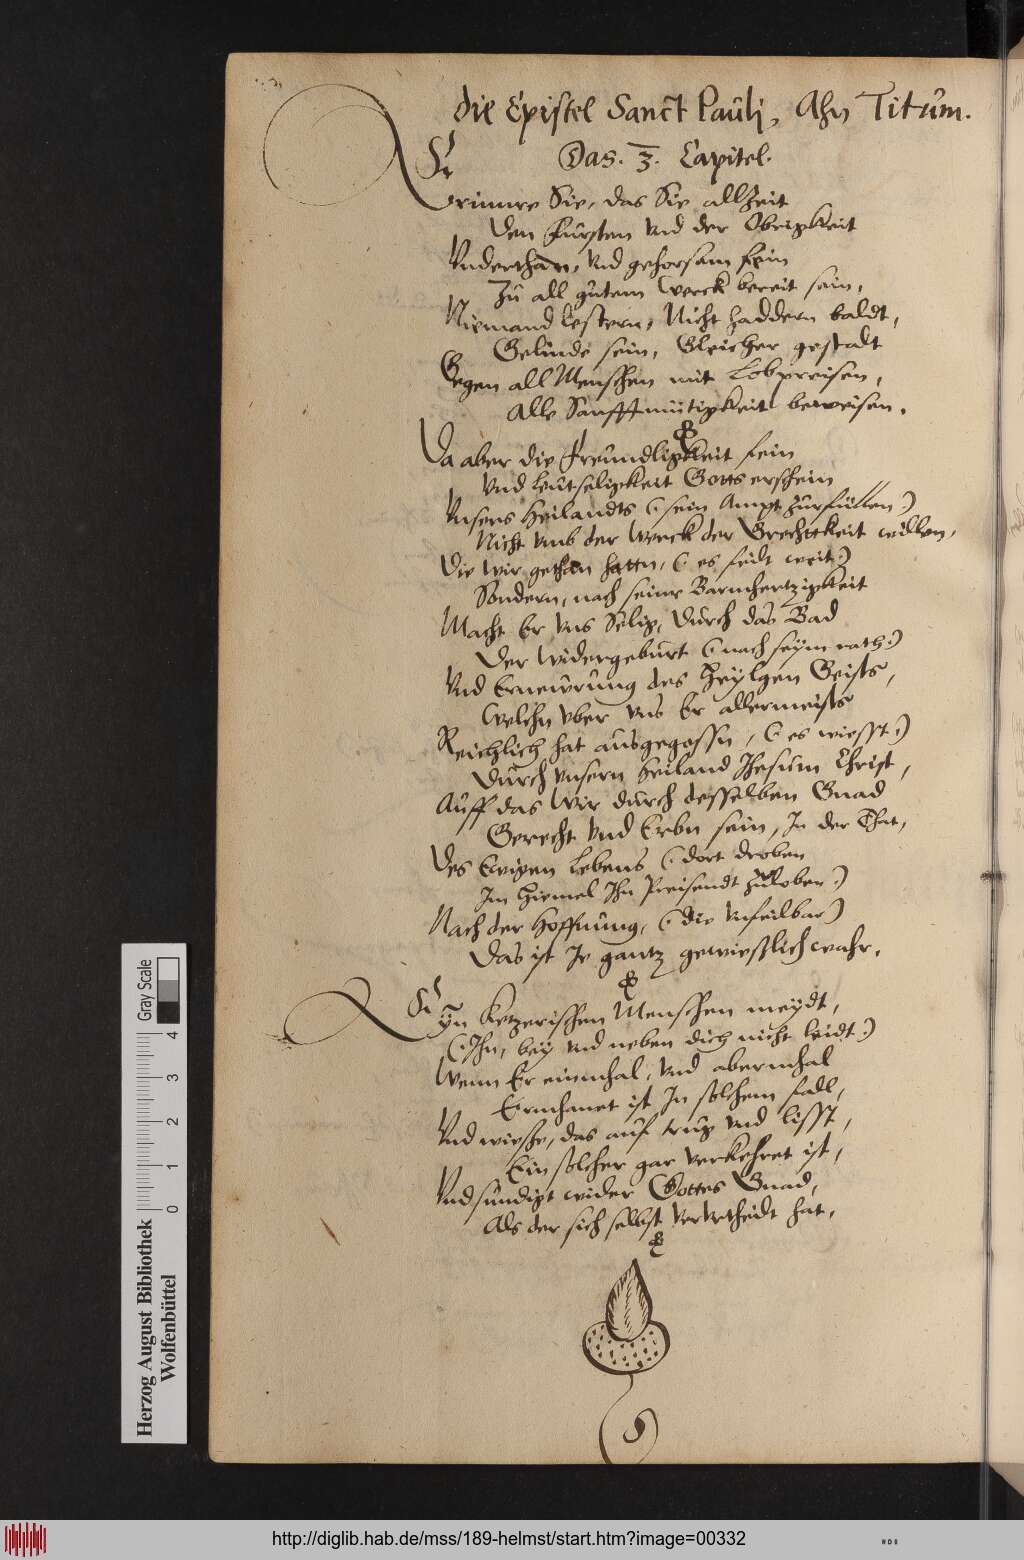 die Epistel Sanct Pauli, Ahn Titum.
Das. 3. Capitel.
Erinnre Sie, das Sie allzeit
Den Fürsten vnd der Obrigkeit
Vnderthan, vnd gehorsam sein
Zu all gutem Werck bereit sein,
Niemand lestern, Nicht haddern baldt,
Gelinde sein, Gleicher gestalt
Gegen all Menschen mit Lobpreisen,
Alle Sanfftmütigkeit beweisen.
Da aber die Freundligkeit sein
Vnd leutseligkeit Gotts erschein
Vnsers Heilandts (: sein Ampt zurfüllen :)
Nicht vmb der Werck der Grechtkeit willen,
Die wir gethan hattn, (: es feilt weit :)
Sondern, nach seiner Barmhertzigkeit
Macht Er vns Selig, durch das Bad
Der Widergeburt (: nach seym rath :)
Vnd Ernewrung des Heylgen Geists,
Welchn vber vns Er allermeists
Reichlich hat ausgegossn, (: es wiesst :)
Durch vnsern Heiland Jhesum Christ,
Auff das Wir durch desselben Gnad
Gerecht vnd Erbn sein, In der That,
Des Ewigen Lebens (: dort droben
Im Hiemel Ihn Preisendt zuloben :)
Nach der Hoffnung, (: die vnfeilbar)
Das ist Je gantz gewießlich wahr.
Eyn Ketzerischen Menschen meydt,
(: Ihn, bey vnd neben dich nicht leidt :)
Wenn Er einmhal, vnd abermhal
Ermhanet ist In solchem fall,
Vnd wiesse, das auf trug vnd lisst,
Ein solcher gar verkehret ist,
Vnd sündigt wider Gottes Gnad,
Als der sich selbst verurtheidt hat.
Herzog August Bibliothek
Wolfenbüttel
0 1 2 3 4
Gray Scale
http://diglib.hab.de/mss/189-helmst/start.htm?image=00332